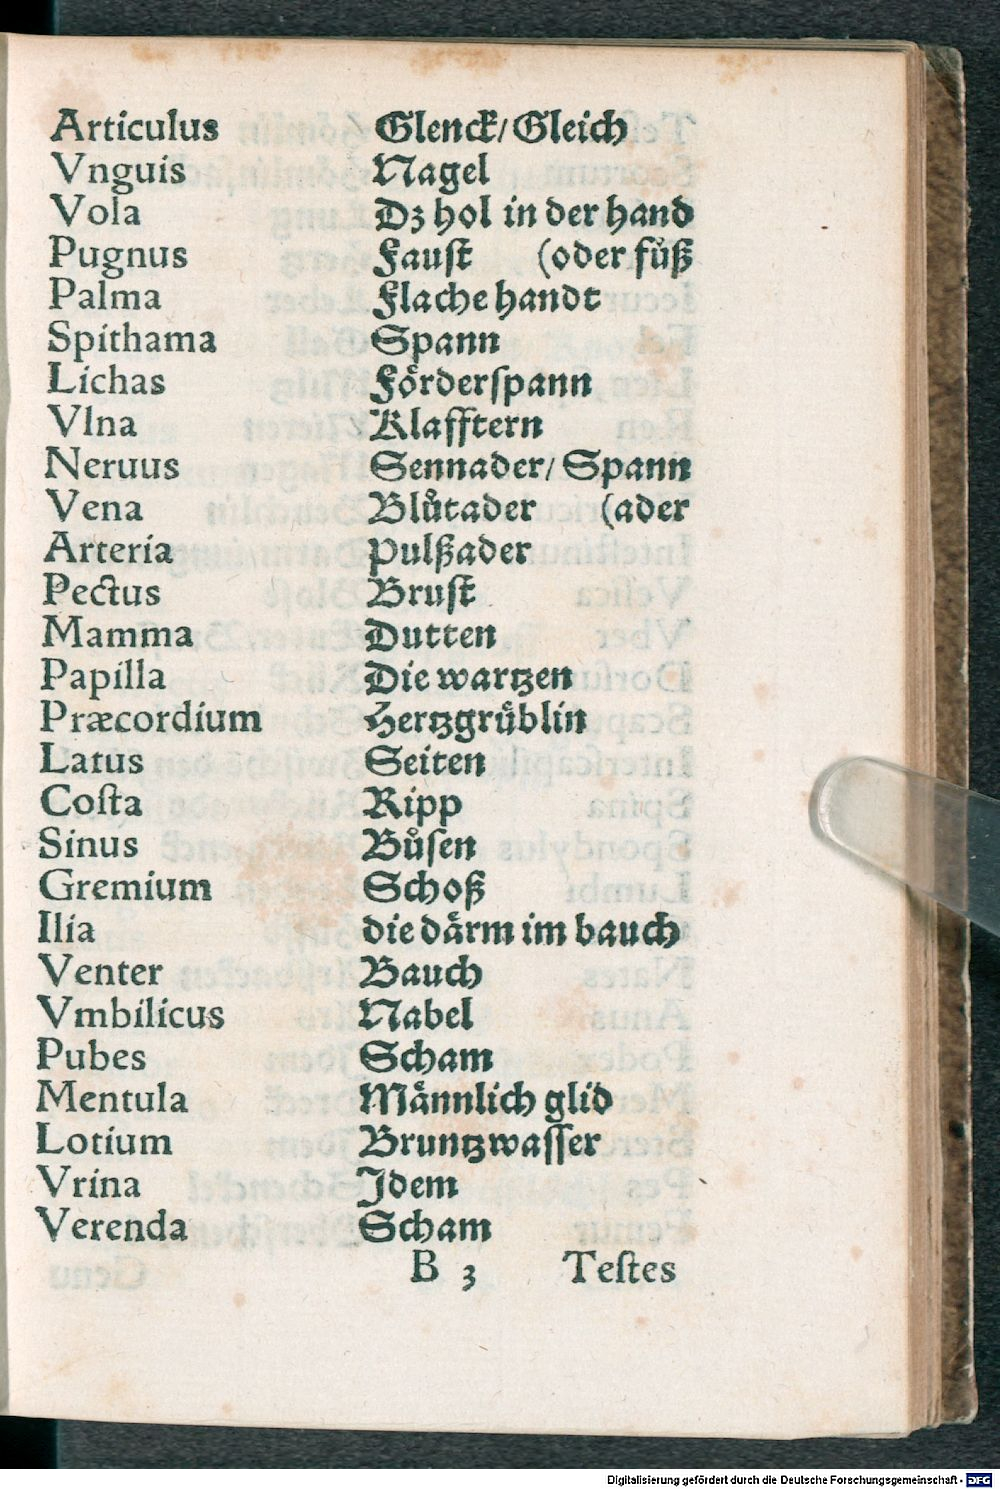 Articulus Glenck/ Gleich
Vnguis Nagel
Vola Dz hol in der hand
Pugnus Faust (oder fuͦß
Palma Flache handt
Spithama Spann
Lichas Foͤrderspann
Vlna Klafftern
Neruus Sennader/ Spann
Vena Bluͦtader (ader
Arteria Pulßader
Pectus Brust
Mamma Dutten
Papilla Die wartzen
Præcordium Hertzgruͤblin
Latus Seiten
Costa Ripp
Sinus Buͦsen
Gremium Schoß
Ilia die daͤrm im bauch
Venter Bauch
Vmbilicus Nabel
Pubes Scham
Mentula Maͤnnlich glid
Lotium Bruntzwasser
Vrina Idem
Verenda Scham
B 3 Testes
Digitalisierung gefördert durch die Deutsche Forschungsgemeinschaft - DFG